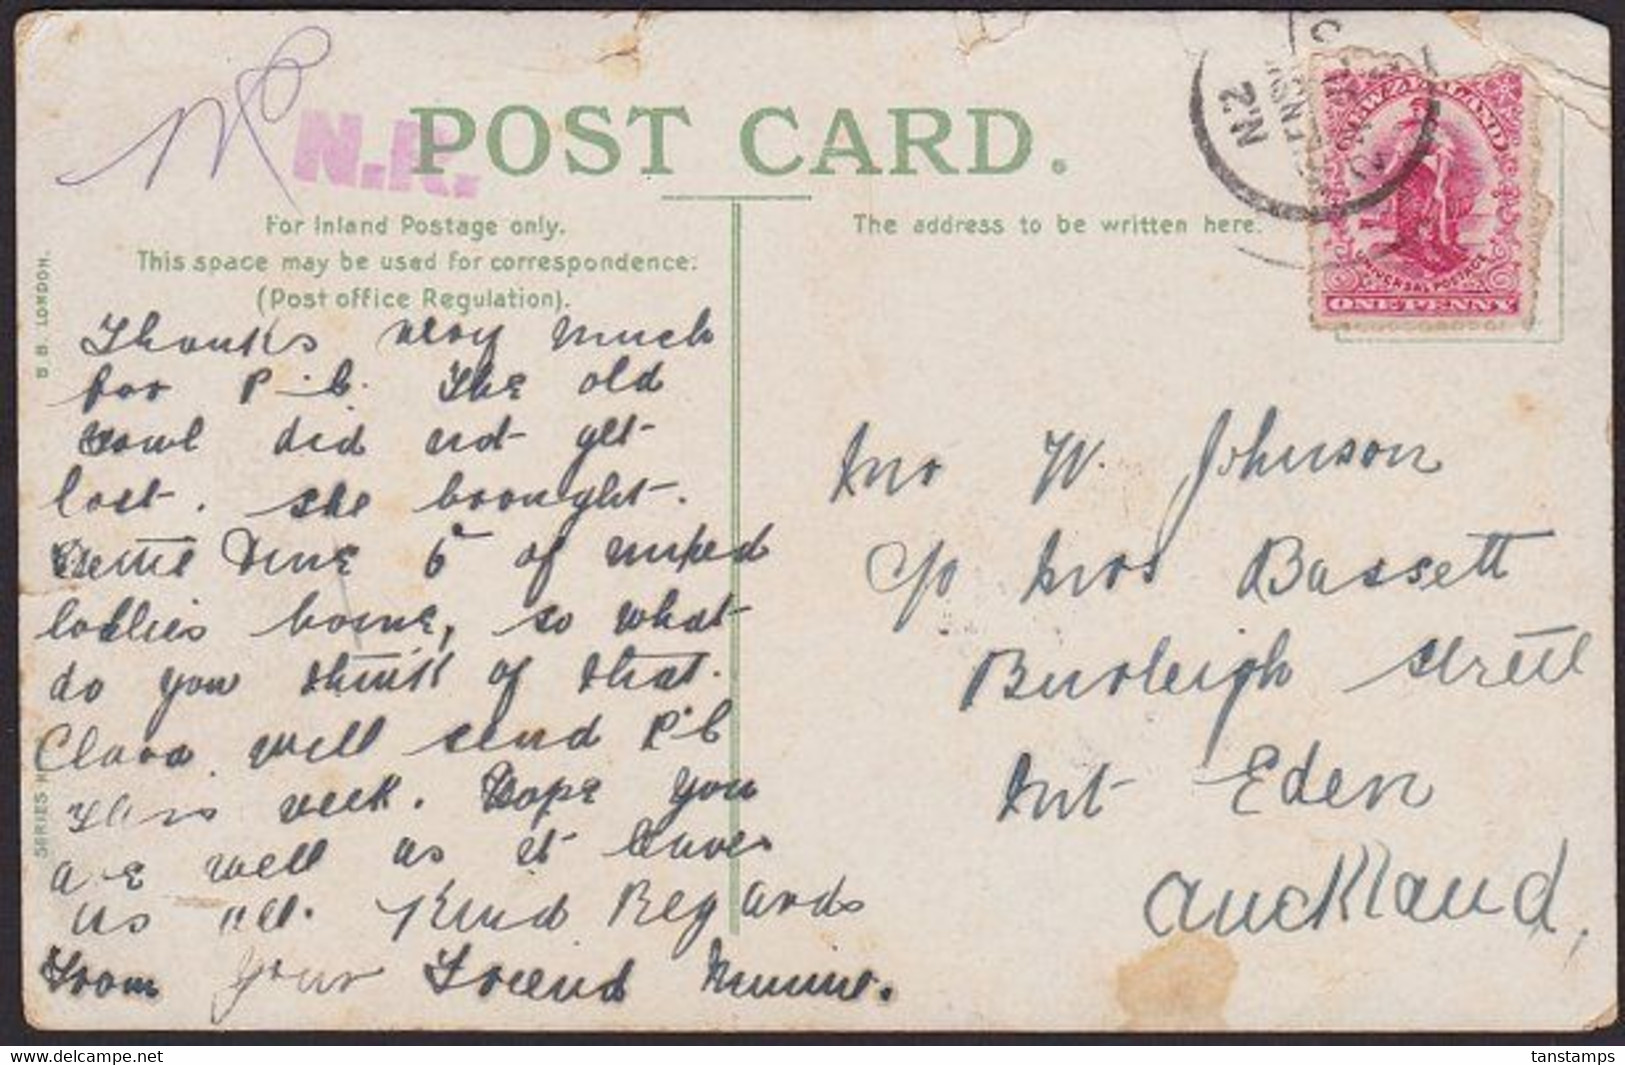 N.K.
POST CARD.
For Inland Postage only.
This space may be used for correspondence.
(Post office Regulation).
The address to be written here.
B. B. LONDON.
SERIES
N.Z
NEW ZEALAND
UNIVERSAL POSTAGE
ONE PENNY
Thanks very much
for P.C. The old
fowl did not get
lost. she brought
home 6 of mixed
lollies home, so what
do you think of that.
Clara will send P.C
this week. Hope you
are well as it leaves
us all. Kind Regards
From your Friend Minnie.
Mr W. Johnson
C/o Mrs Bassett
Burleigh Street
Mt Eden
Auckland,
delcampe.net
tanstamps